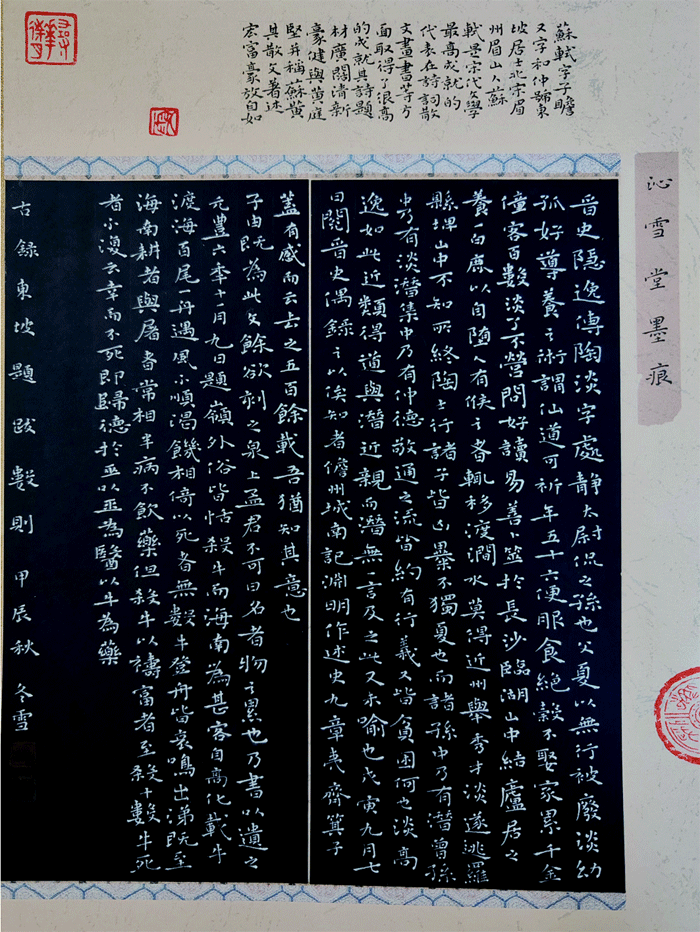 蘇軾字子瞻
又字和仲號東
坡居士北宗眉
州眉山人蘇
軾是宋代文學
最高成就的
代表在詩詞散
文畫書等方
面取得了很高
的成就其詩題
材廣闊清新
豪健與黄庭
堅并稱蘇黄
其散文著述
宏富豪放自如
沁雪堂墨痕
晉史隱逸傳陶淡字處靜太尉侃之孫也父夏以無行被廢淡幼
孤好導養之術謂仙道可祈年五十六便服食絕穀不娶家累千金
僮客百數淡了不營問好讀易善卜筮於長沙臨湖山中結廬居之
養一白鹿以自随人有候之者輒移渡澗水莫得近州舉秀才淡遂逃羅
縣埤山中不知所終陶士行諸子皆凶暴不獨夏也而諸孫中乃有潛曾孫
中乃有淡潛集中乃有仲德敬通之流皆約有行義又皆貧困何也淡高
逸如此近類得道與潛近親而潛無一言及之此又未喻也戊寅九月七
日閱晉史偶錄之以俟知者儋州城南記淵明作述史九章夷齊箕子
蓋有感而云去之五百餘載吾猶知其意也
子由既為此文餘欲刻之泉上孟君不可曰名者物之累也乃書以遺之
元豊六年十月九日題嶺外俗皆恬殺牛而海南為甚客自高化載牛
渡海百尾一舟遇風不順渴饑相倚以死者無數牛登舟皆哀鳴出涕既至
海南耕者與屠者常相半病不飲藥但殺牛以禱富者至殺十數牛死
者不復云幸而不死即歸德於巫以巫為醫以牛為藥
古錄東坡題跋數則甲辰秋冬雪